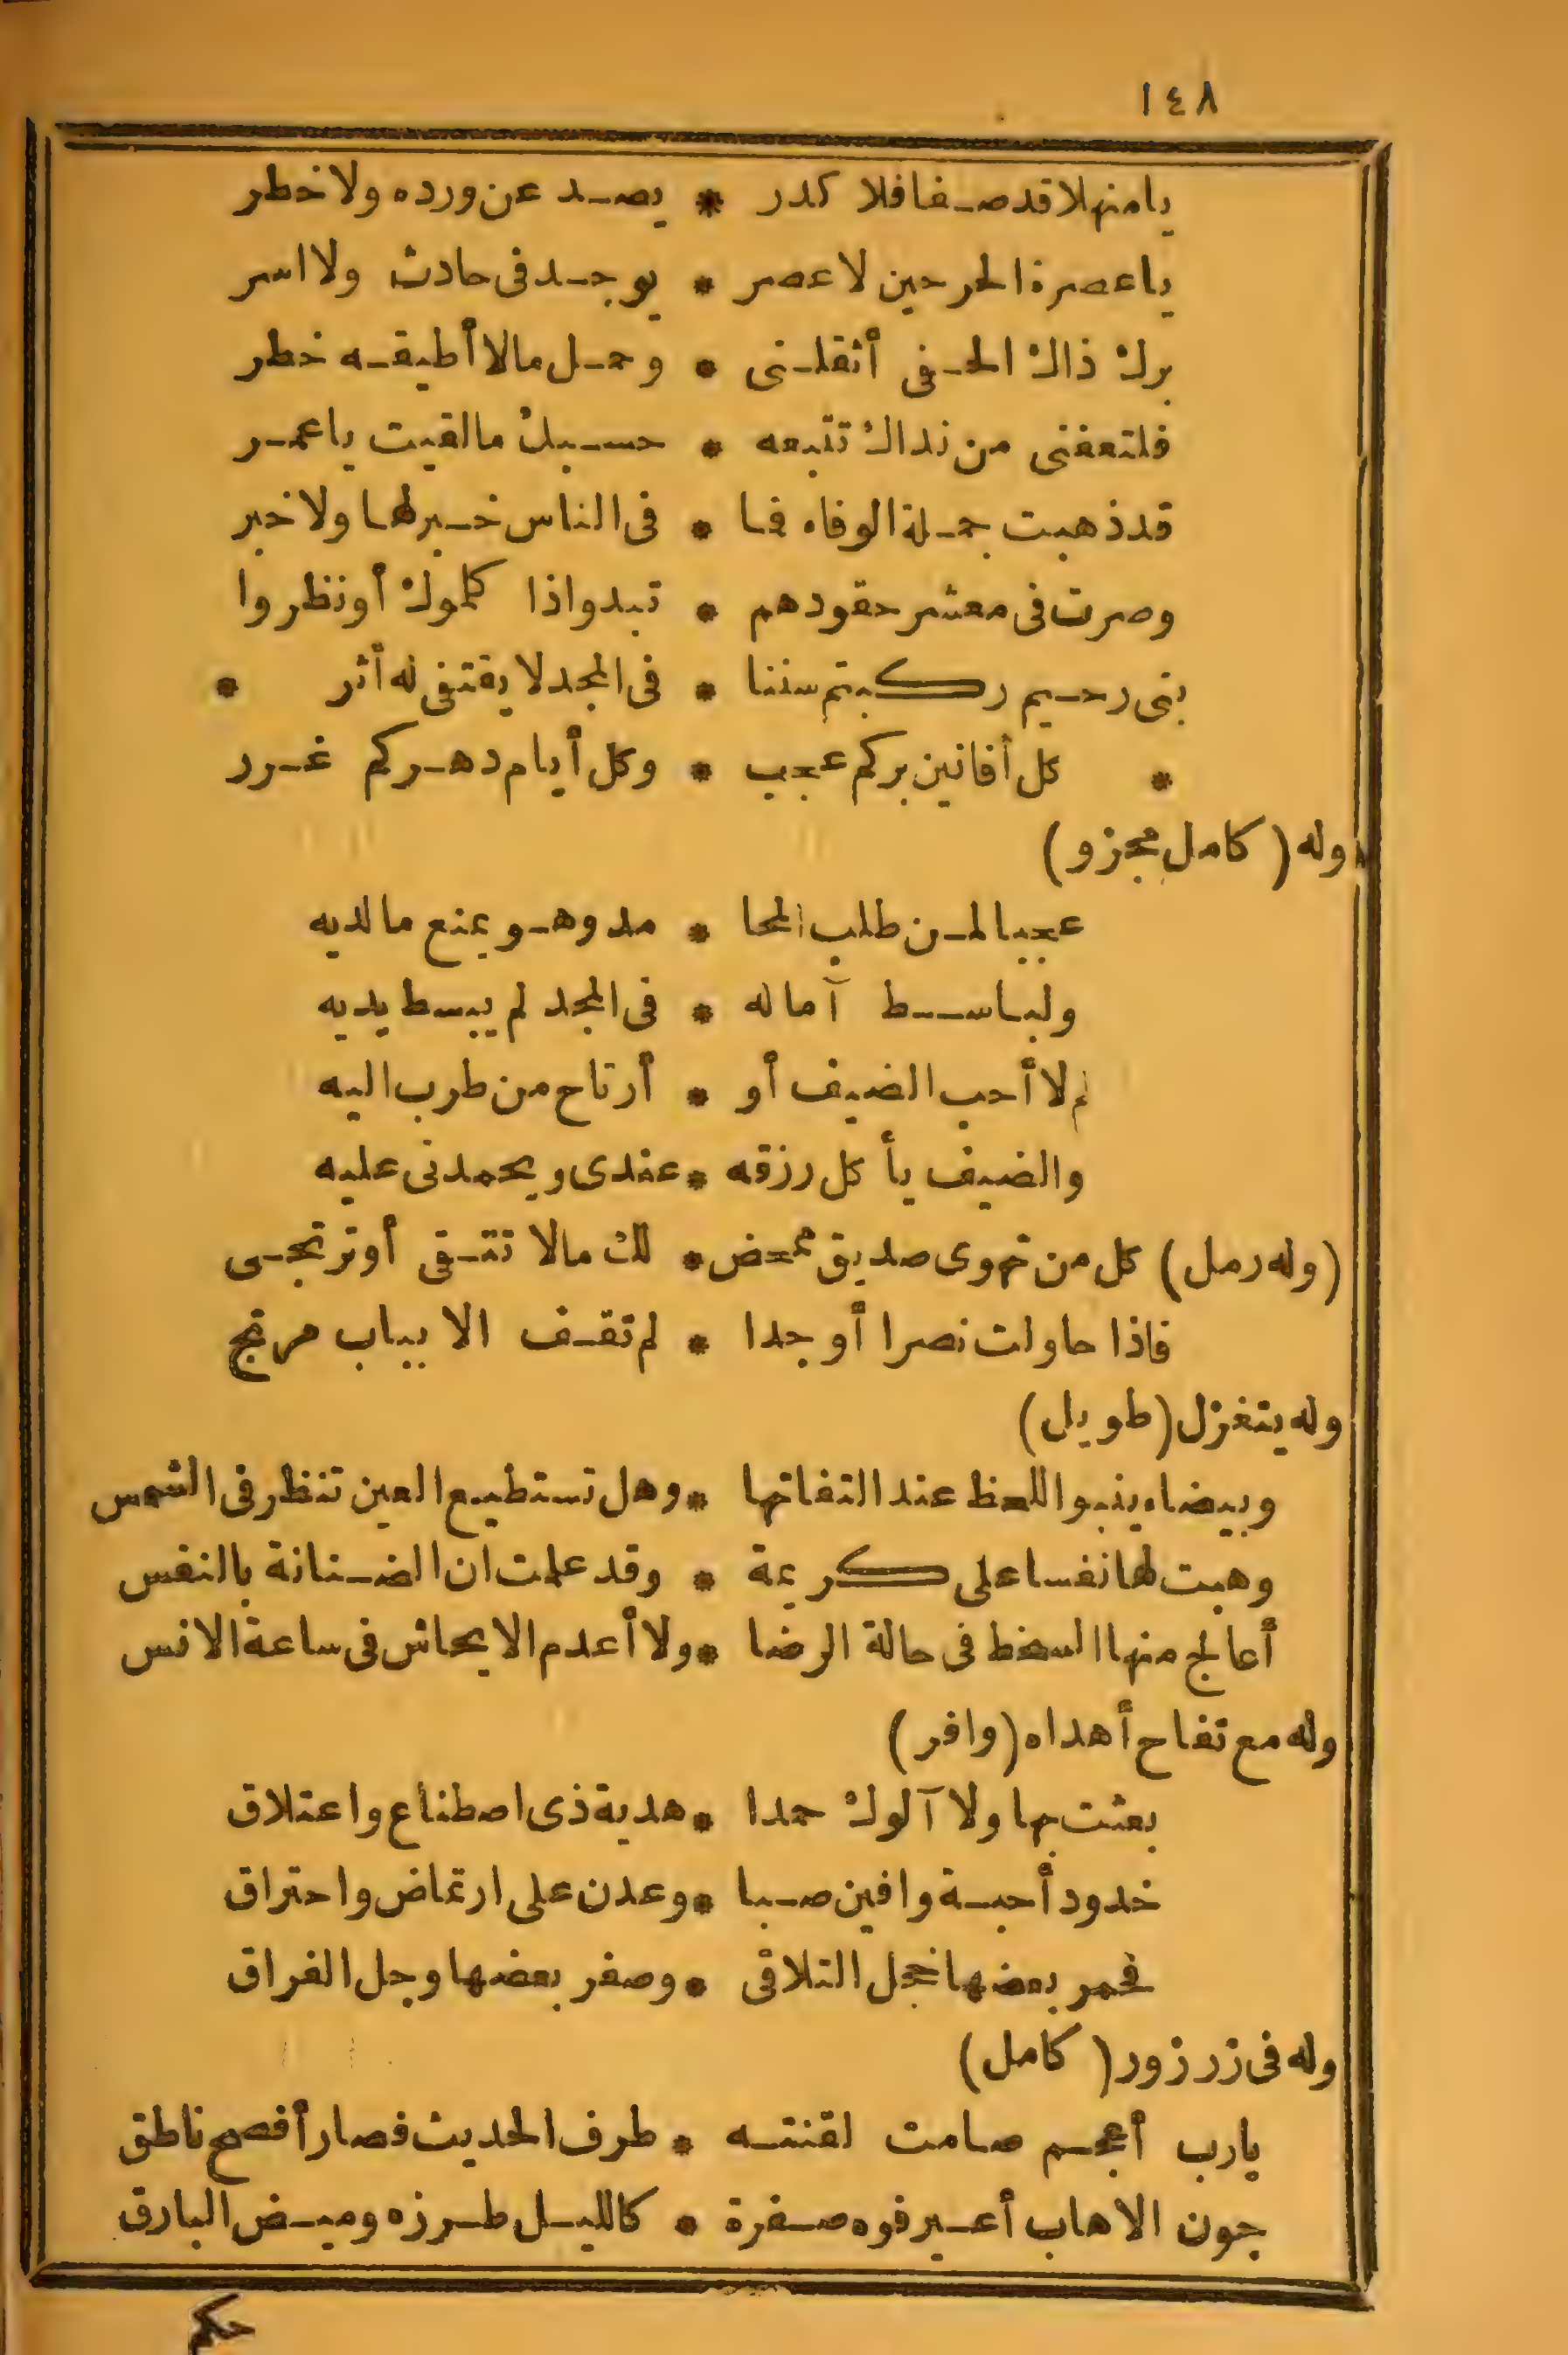 ١٤٨
يا منهلا قد صفا فلا كدر * يصد عن ورده ولا خطر
يا عصرة الحر حين لا عصر * يوجد فى حادث ولا اسر
برك ذاك الحفى أثقلنى * وحمل مالا أطيقه خطر
فلتعفنى من نداك تتبعه * حسبك مالقيت يا عمر
قد ذهبت جملة الوفاء فما * فى الناس خبر لها ولا خبر
وصرت فى معشر حقودهم * تبدو اذا كلموك أو نظروا
بنى رحيم ركبتم سننا * فى المجد لا يقتفى له أثر *
* كل أفانين بركم عجب * وكل أيام دهركم غرر
وله (كامل مجزو)
عجبا لمن طلب المحا * مد وهو يمنع مالديه
ولباسط آماله * فى المجد لم يبسط يديه
لم لا أحب الضيف أو * أرتاح من طرب اليه
والضيف يأكل رزقه * عندى ويحمدنى عليه
(وله رمل) كل من تهوى صديق ممحض * لك مالا تتقى أو ترتجى
فاذا حاولت نصرا أو جدا * لم تقف الا بباب مرتج
وله يتغزل (طويل)
وبيضاء ينبو اللحظ عند التفاتها * وهل تستطيع العين تنظر فى الشمس
وهبت لها نفسا على كريمة * وقد علمت ان الضنانة بالنفس
أعالج منها السخط فى حالة الرضا * ولا أعدم الايحاش فى ساعة الانس
وله مع تفاح أهداه (وافر)
بعثت بها ولا آلوك حمدا * هدية ذى اصطناع واعتلاق
خدود أحبة وافين صبا * وعدن على ارتماض واحتراق
فحمر بعضها خجل التلاقى * وصفر بعضها وجل الفراق
وله فى زرزور (كامل)
يارب أعجم صامت لقنته * طرف الحديث فصار أفصح ناطق
جون الاهاب أعير فوه صفرة * كالليل طرزه وميض البارق
حكم